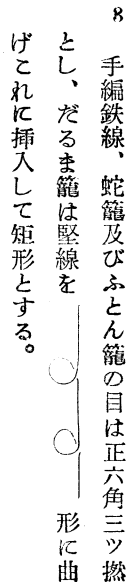 8 手編鉄線、蛇籠及びふとん籠の目は正六角三ツ撚
とし、だるま籠は堅線を 形に曲
げこれに挿入して矩形とする。